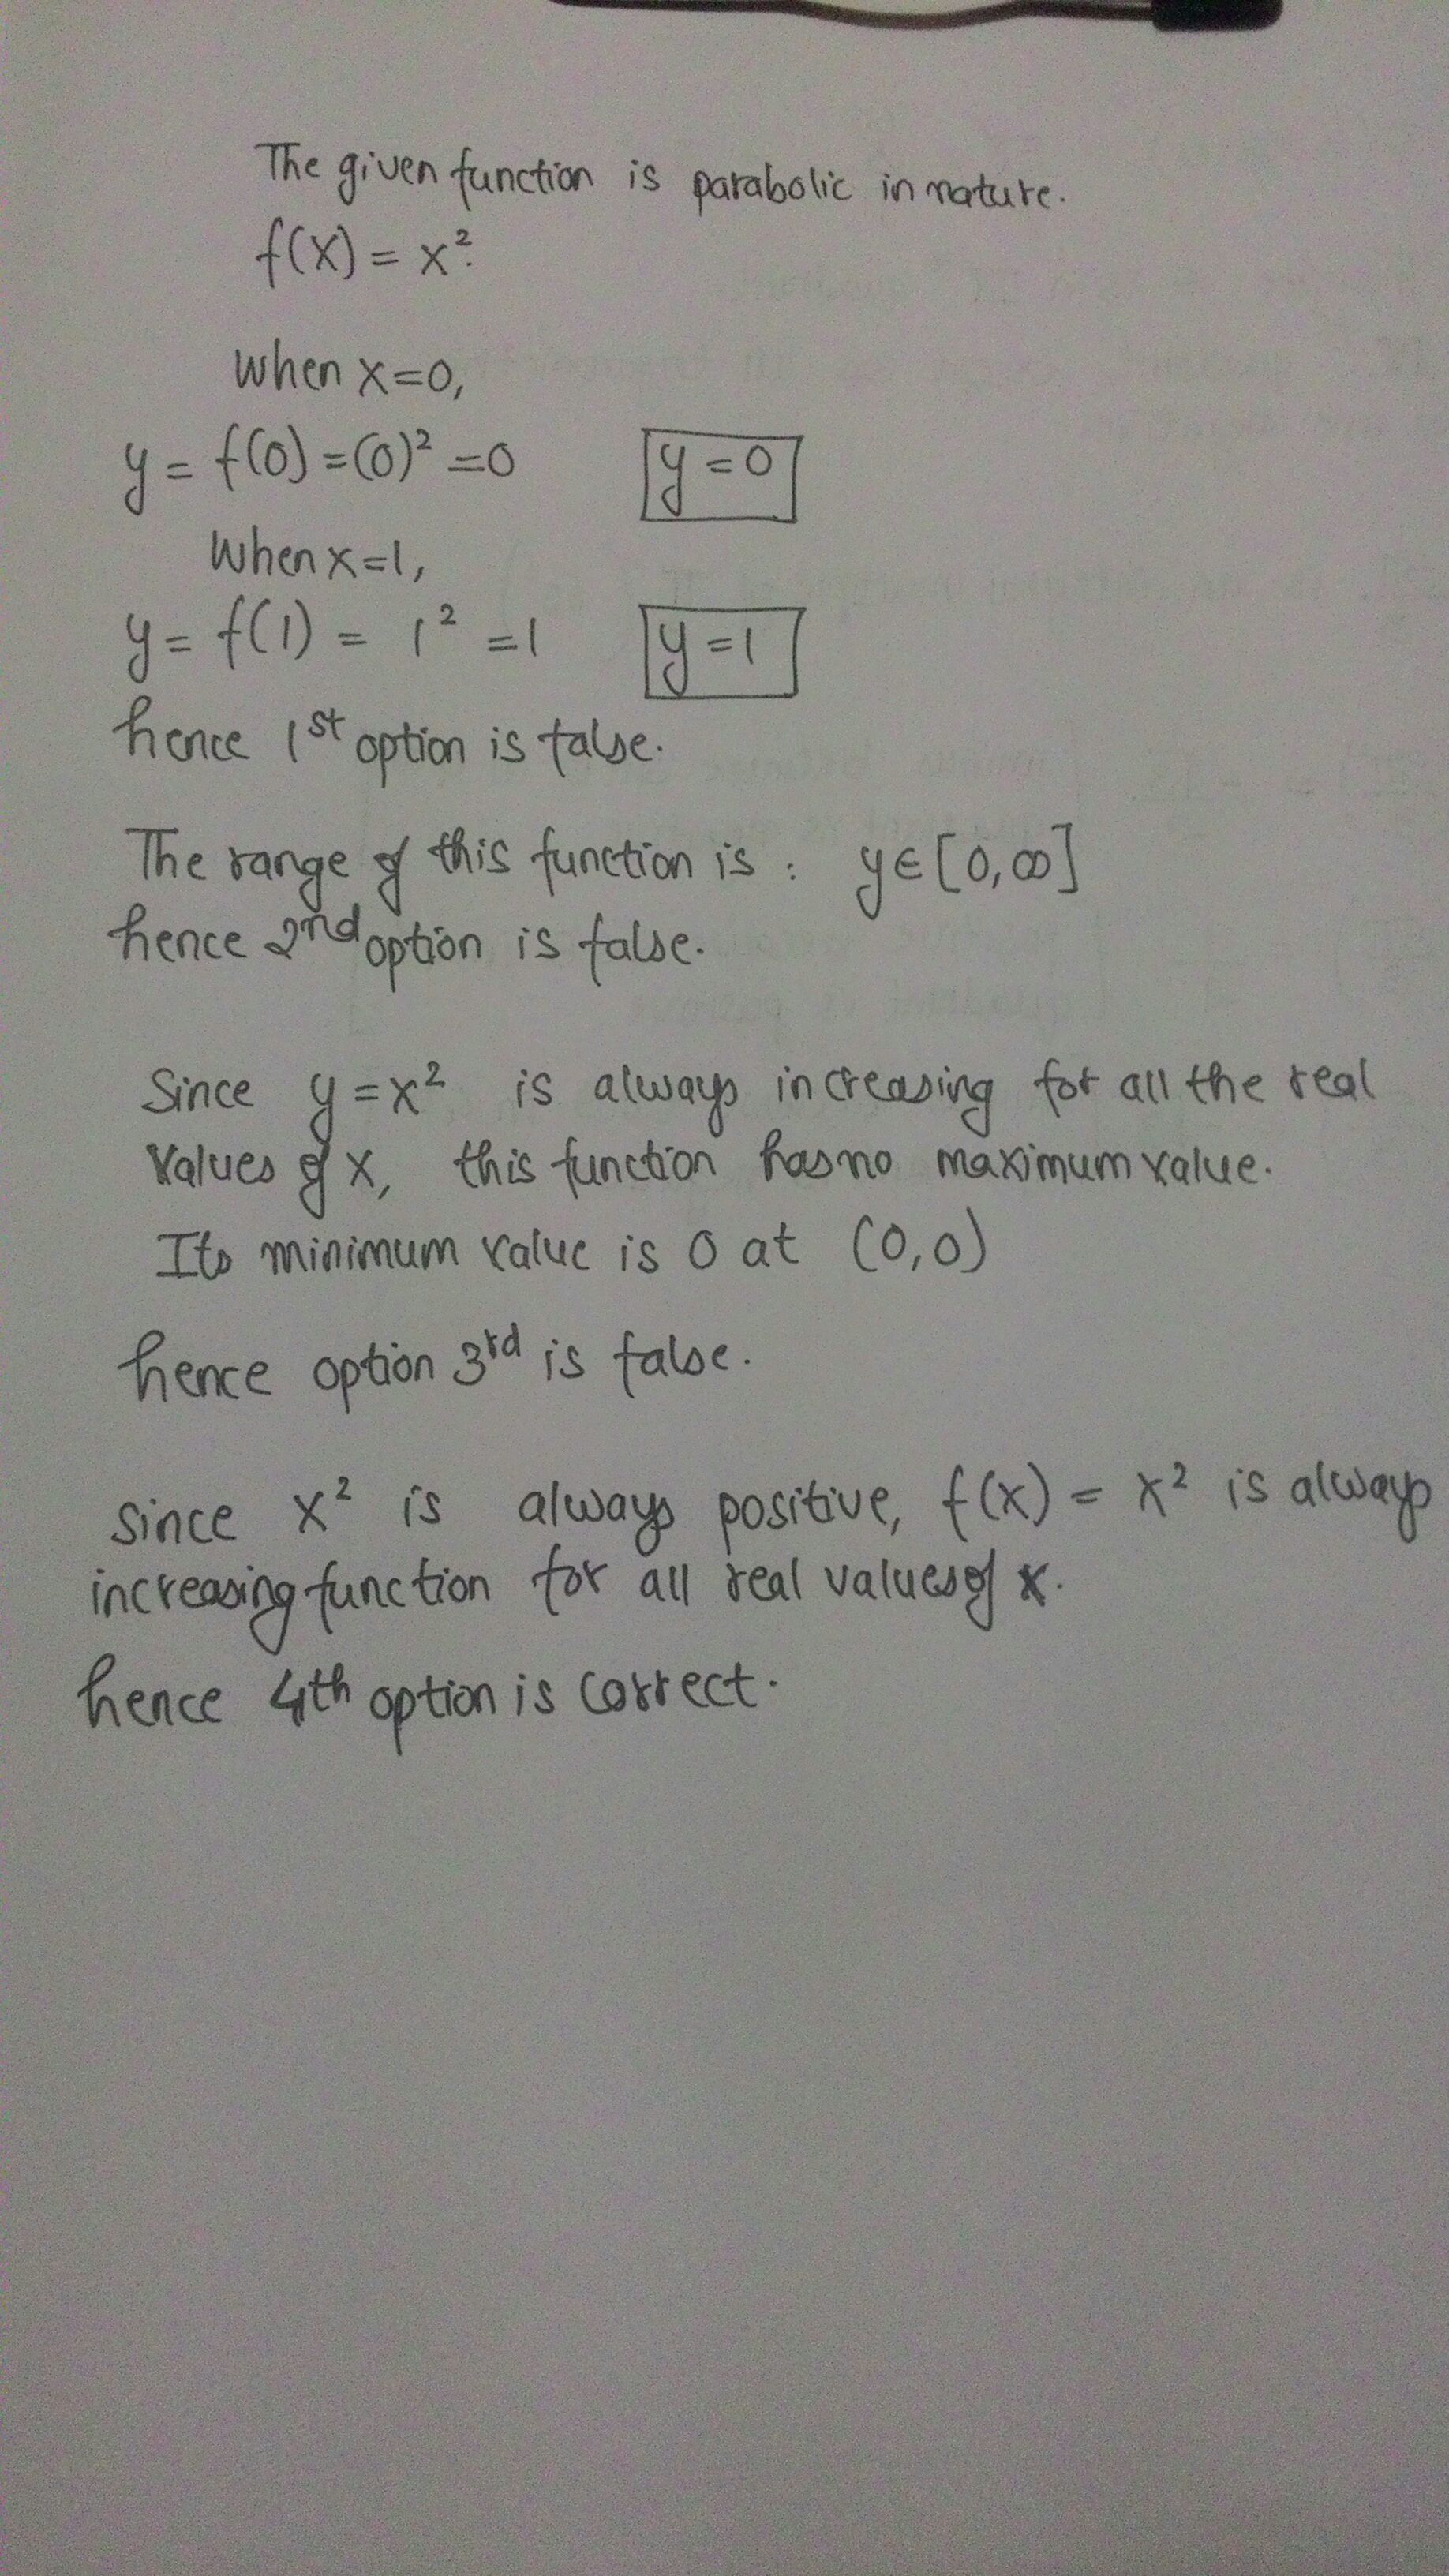 The given function is parabolic in nature.
f(x) = x².
When x=0,
y = f(0) =(0)² =0 y=0
When x=1,
y= f(1) = 1² =1 y=1
hence 1st option is false.
The range of this function is : y∈[0,∞]
hence 2nd option is false.
Since y=x² is always increasing for all the real
Values of x, this function has no maximum value.
Its minimum value is 0 at (0,0)
hence option 3rd is false.
Since x² is always positive, f(x) = x² is always
increasing function for all real values of x.
hence 4th option is correct.